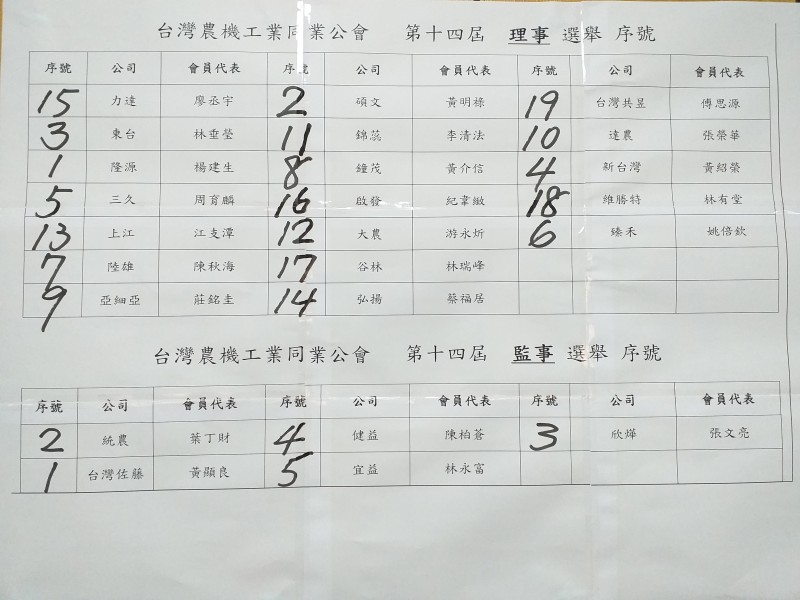 台灣農機工業同業公會 第十四屆 理事 選舉 序號
序號 公司 會員代表 序號 公司 會員代表 序號 公司 會員代表
15 力達 廖丞宇 2 碩文 黃明祿 19 台灣共昱 傅思源
3 東台 林垂瑩 11 錦蕊 李清法 10 達農 張榮華
1 隆源 楊建生 8 鐘茂 黃介信 4 新台灣 黃紹榮
5 三久 周育麟 16 啟發 紀韋緻 18 維勝特 林有堂
13 上江 江支潭 12 大農 游永炘 6 臻禾 姚倍欽
7 陸雄 陳秋海 17 谷林 林瑞峰
9 亞細亞 莊銘圭 14 弘揚 蔡福居
台灣農機工業同業公會 第十四屆 監事 選舉 序號
序號 公司 會員代表 序號 公司 會員代表 序號 公司 會員代表
2 統農 葉丁財 4 健益 陳柏蒼 3 欣燁 張文亮
1 台灣佐藤 黃顯良 5 宜益 林永富